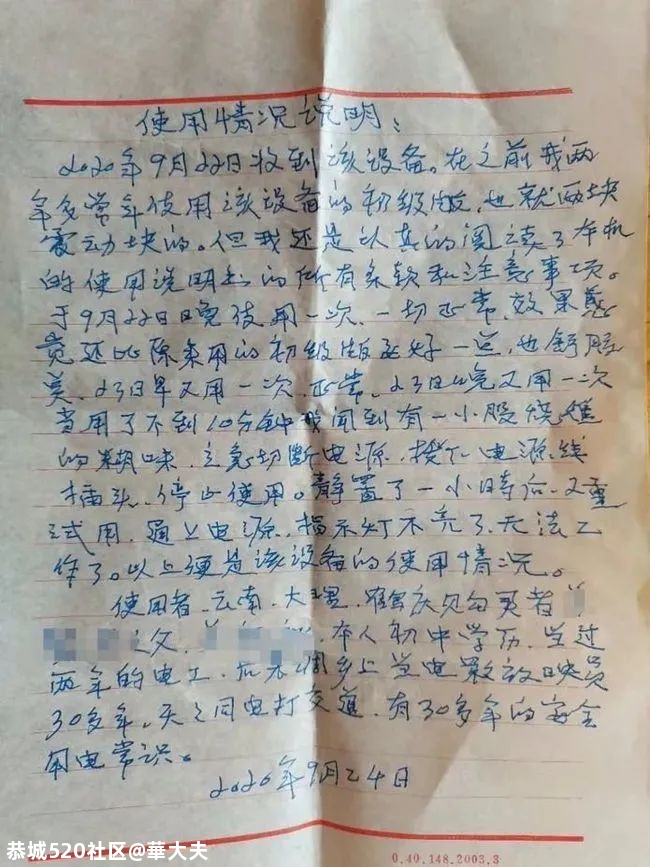 使用情况说明：
2020年9月22日收到该设备。在之前我两
年多常年使用该设备的初级版，也就两块
震动块的。但我还是认真的阅读了本机
的使用说明书的所有条款和注意事项。
于9月22日晚使用一次、一切正常，效果感
觉还比原来用的初级版更好一些，也舒服
美、23日早又用一次、正常、23日晚又用一次
当用了不到10分钟我闻到有一小股烧焦
的糊味、立急切断电源、拨下电源线
插头、停止使用。静置了一小时后、又重
试用、通上电源、指示灯不亮了、无法工
作了。以上便是该设备的使用情况。
使用者、云南、大理、鹤庆见购买者
之父、本人初中学历、当过
两年的电工、后来调乡上当电影放映员
30多年、天天同电打交道、有30多年的安全
用电常识。
2020年9月24日
0.40.148.2003.3
恭城520社区@華大夫